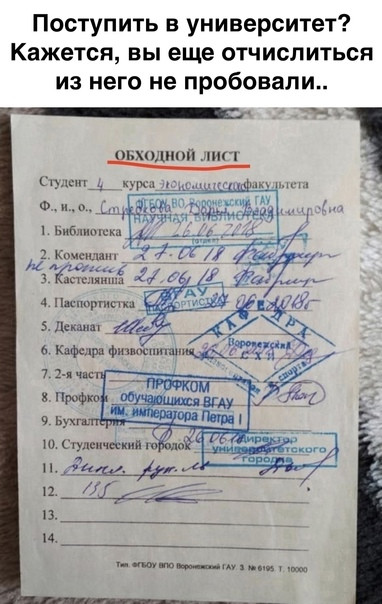 Поступить в университет?
Кажется, вы еще отчислиться
из него не пробовали..
ОБХОДНОЙ ЛИСТ
Студент 4 курса экономическ факультета
Ф., и., о., Владимировна
ФГБОУ ВО Воронежский ГАУ
НАУЧНАЯ БИБЛИОТЕКА
1. Библиотека 26.06.2018
2. Комендант 27.06 18
не против
3. Кастелянша 27.06 18
4. Паспортистка 27.06.2018г
ГАУ
ПАСПОРТИСТ
5. Деканат
КАФЕДРА
Воронежский
СХИ
спорта
6. Кафедра физвоспитания
7. 2-я часть
8. Профком
ПРОФКОМ
обучающихся ВГАУ
им. императора Петра I
9. Бухгалтерия
10. Студенческий городок
Директор
университетского
городка
11. Дипл. рук.
12. 135
13.
14.
Тип. ФГБОУ ВПО Воронежский ГАУ. З. № 6195. Т. 10000